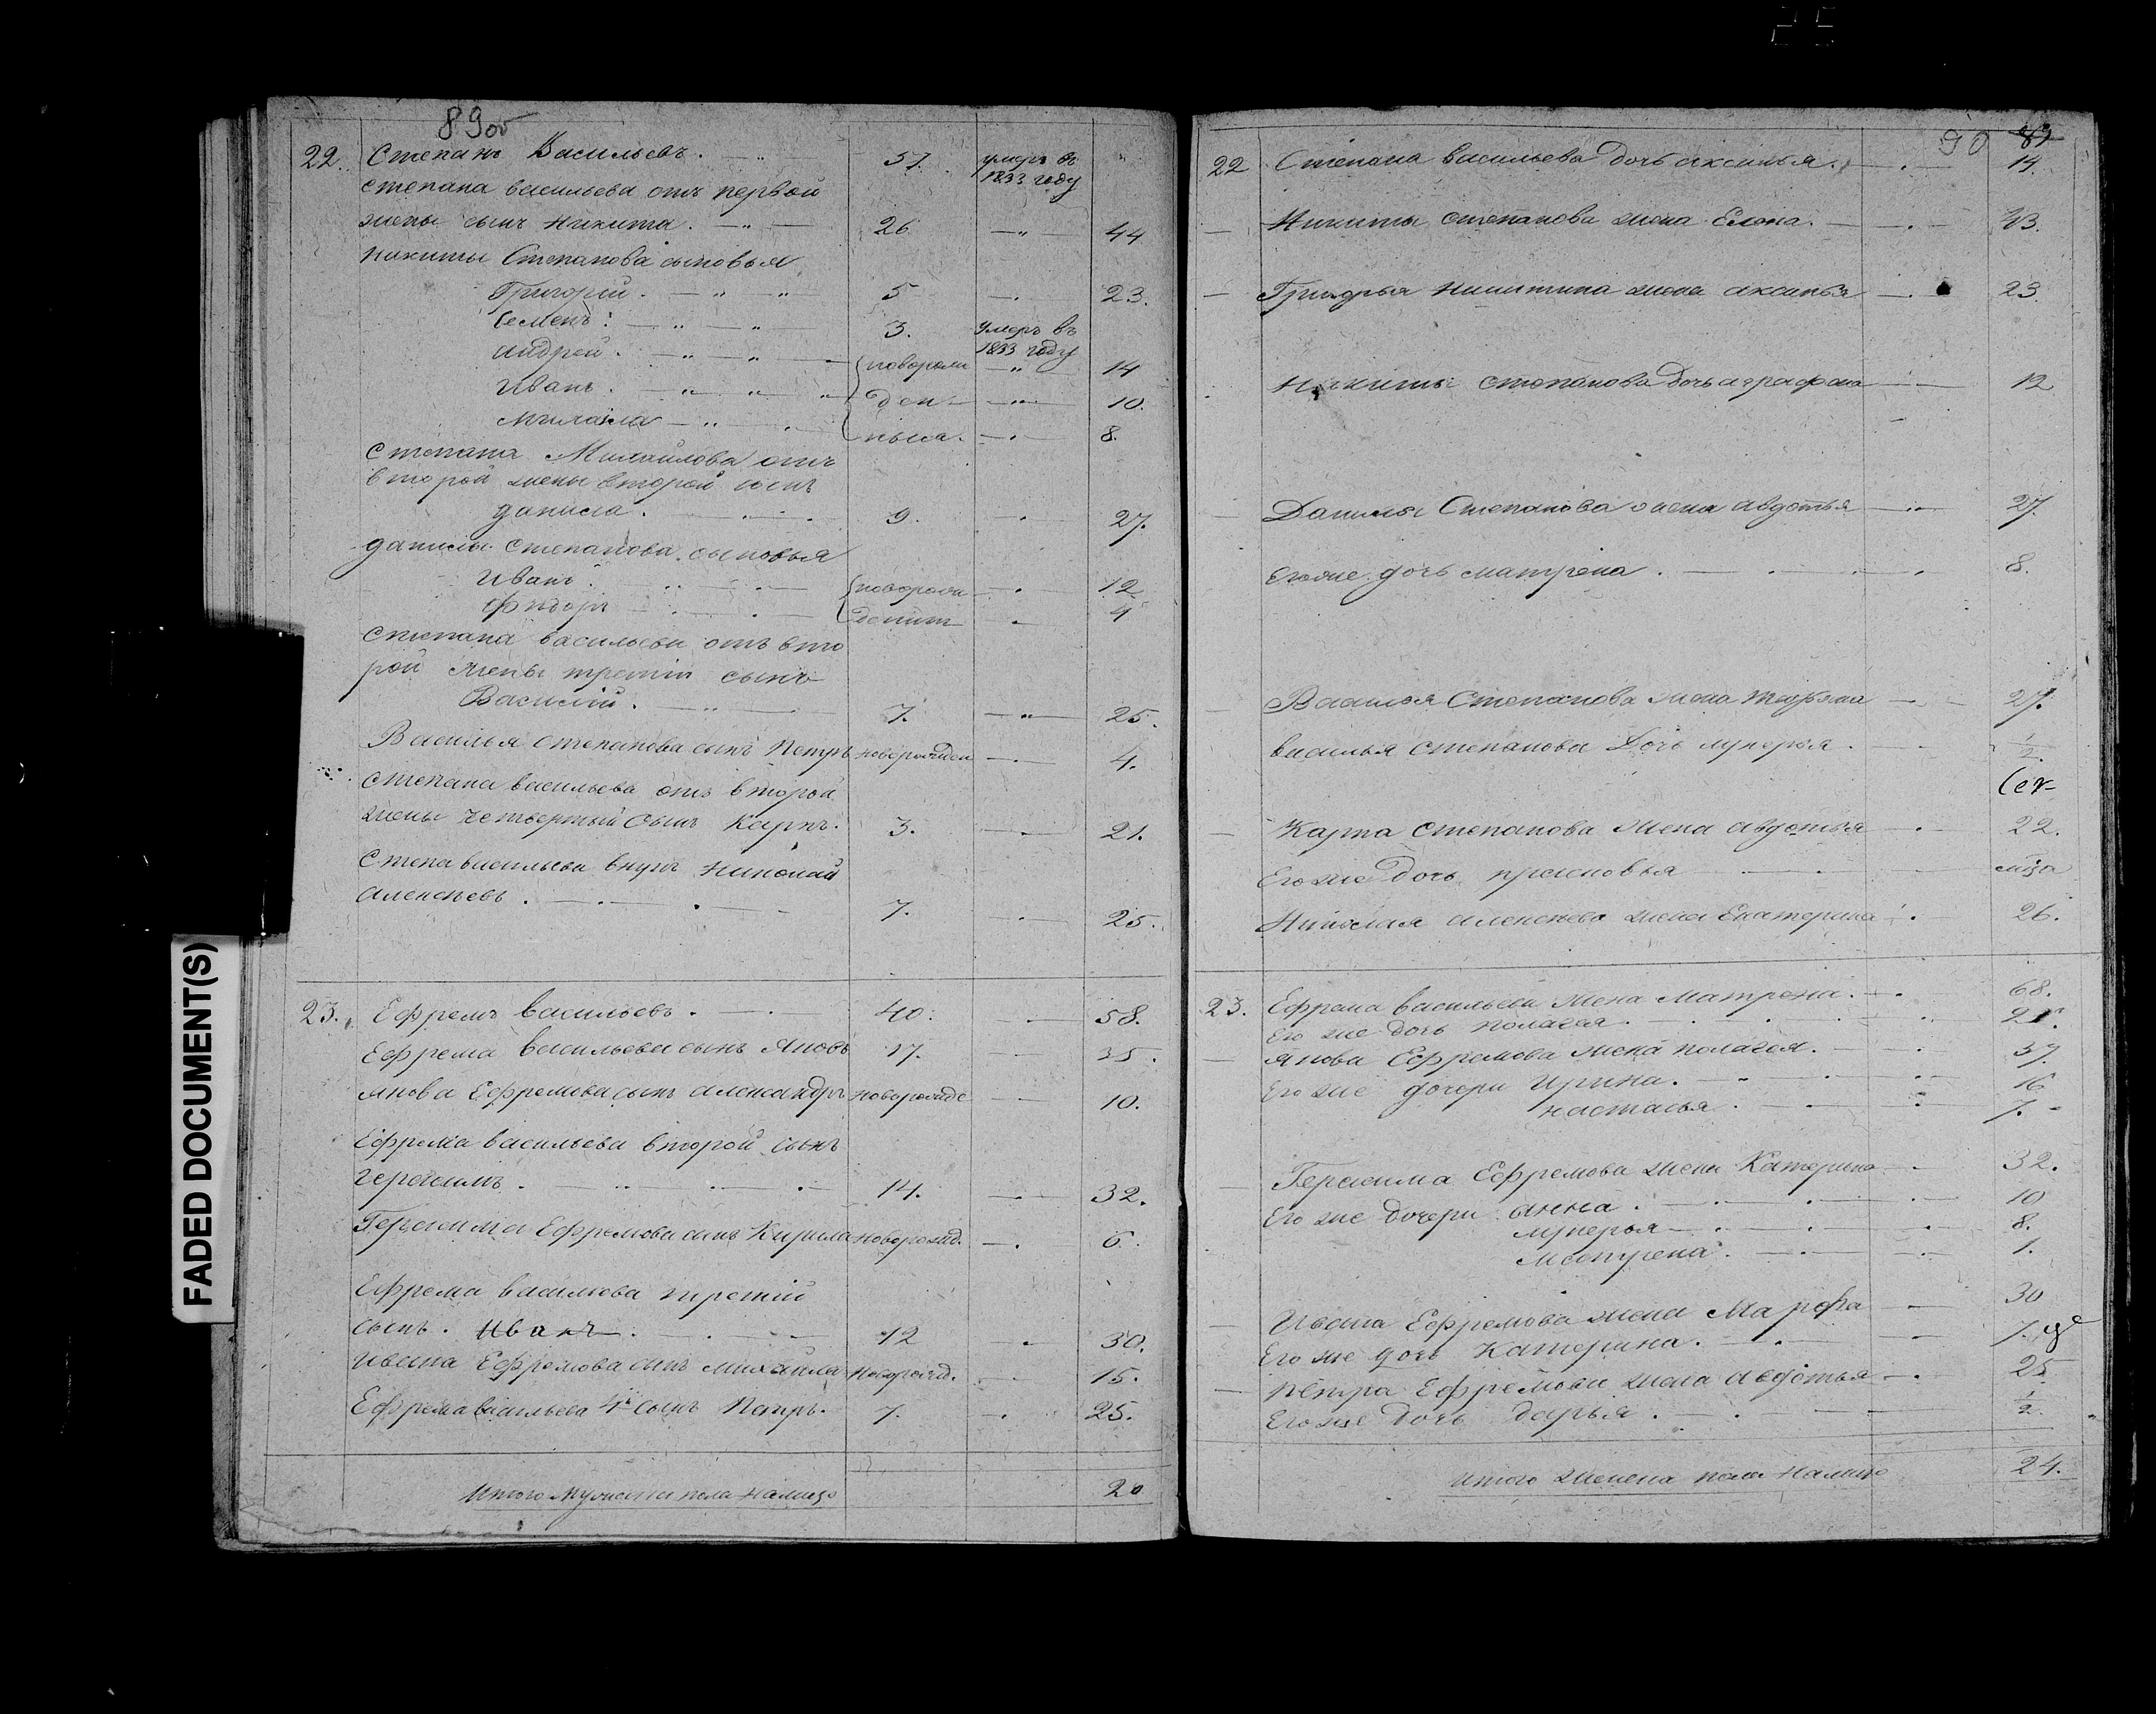 89об
22. Степанъ Васильевъ. 57. умеръ въ 1833 году
Степана Васильева отъ первой
жены сынъ Никита. 26 44
Никиты Степанова сыновья
Григорій. 5 23.
Семенъ. 3. умеръ въ 1833 году
Андрей. новорож 14
Иванъ. ден 10.
Михайла 8.
Степана Михайлова отъ
второй жены второй сынъ
Данила. 9. 27.
Данилы Степанова сыновья
Иванъ. новорож 12
Фидоръ дении 4
Степана Васильева отъ вто
рой жены третій сынъ
Василій. 7. 25.
Василья Степанова сынъ Петръ новорожден 4.
Степана Васильева отъ второй
жены четвертый сынъ Карпъ. 3. 21.
Степа Васильева внукъ Николай
Алексѣевъ. 7. 25.
23. Ефремъ Васильевъ. 40. 58.
Ефрема Васильева сынъ Яковъ 17. 35.
Якова Ефремова сынъ Александръ новорожде 10.
Ефрема Васильева второй сынъ
Герасимъ. 14. 32.
Герасима Ефремова сынъ Кирила новорожд. 6.
Ефрема Васильева третій
сынъ. Иванъ. 12 30.
Ивана Ефремова сынъ Михайла новорожд. 15.
Ефрема Васильева 4й сынъ Петръ. 7. 25.
Итого мужеска пола налицо 20
90 89
22 Степана Васильева дочь Аксинья. 14.
Никиты Степанова жена Елена. 43.
Григорья Никитина жена Аксинья 23.
Никиты Степанова дочь Аграфена 12
Данилы Степанова жена Авдотья 27.
Егоже дочь Матрена. 8.
Василья Степанова жена Татьяна 27.
Василья Степанова дочь Лукерья. 1/2.
Карпа Степанова жена Авдотья 22.
Его же дочь Прасковья мѣца
Николая Алексѣева жена Екатерина. 26.
23. Ефрема Васильева жена Матрена. 68.
Его же дочь Пелагея. 21.
Якова Ефремова жена Пелагея. 37.
Его же дочери Ирина. 16
Настасья. 7.
Герасима Ефремова жена Катерина 32.
Его же дочери Анна. 10
Лукерья 8.
Матрена. 1.
Ивана Ефремова жена Марфа 30
Его же дочь Катерина. 7.
Петра Ефремова жена Авдотья 25
Его же дочь Дарья. 1/2.
Итого женска пола налицо 24.
FADED DOCUMENT(S)